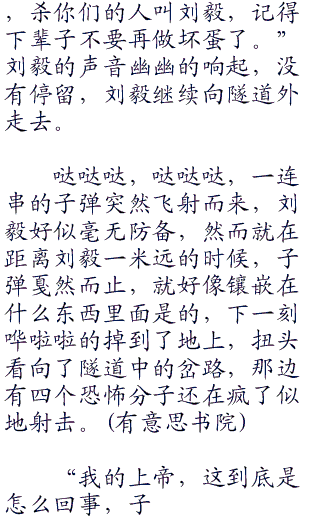 ，杀你们的人叫刘毅，记得
下辈子不要再做坏蛋了。”
刘毅的声音幽幽的响起，没
有停留，刘毅继续向隧道外
走去。
哒哒哒，哒哒哒，一连
串的子弹突然飞射而来，刘
毅好似毫无防备，然而就在
距离刘毅一米远的时候，子
弹戛然而止，就好像镶嵌在
什么东西里面是的，下一刻
哗啦啦的掉到了地上，扭头
看向了隧道中的岔路，那边
有四个恐怖分子还在疯了似
地射击。(有意思书院)
“我的上帝，这到底是
怎么回事，子